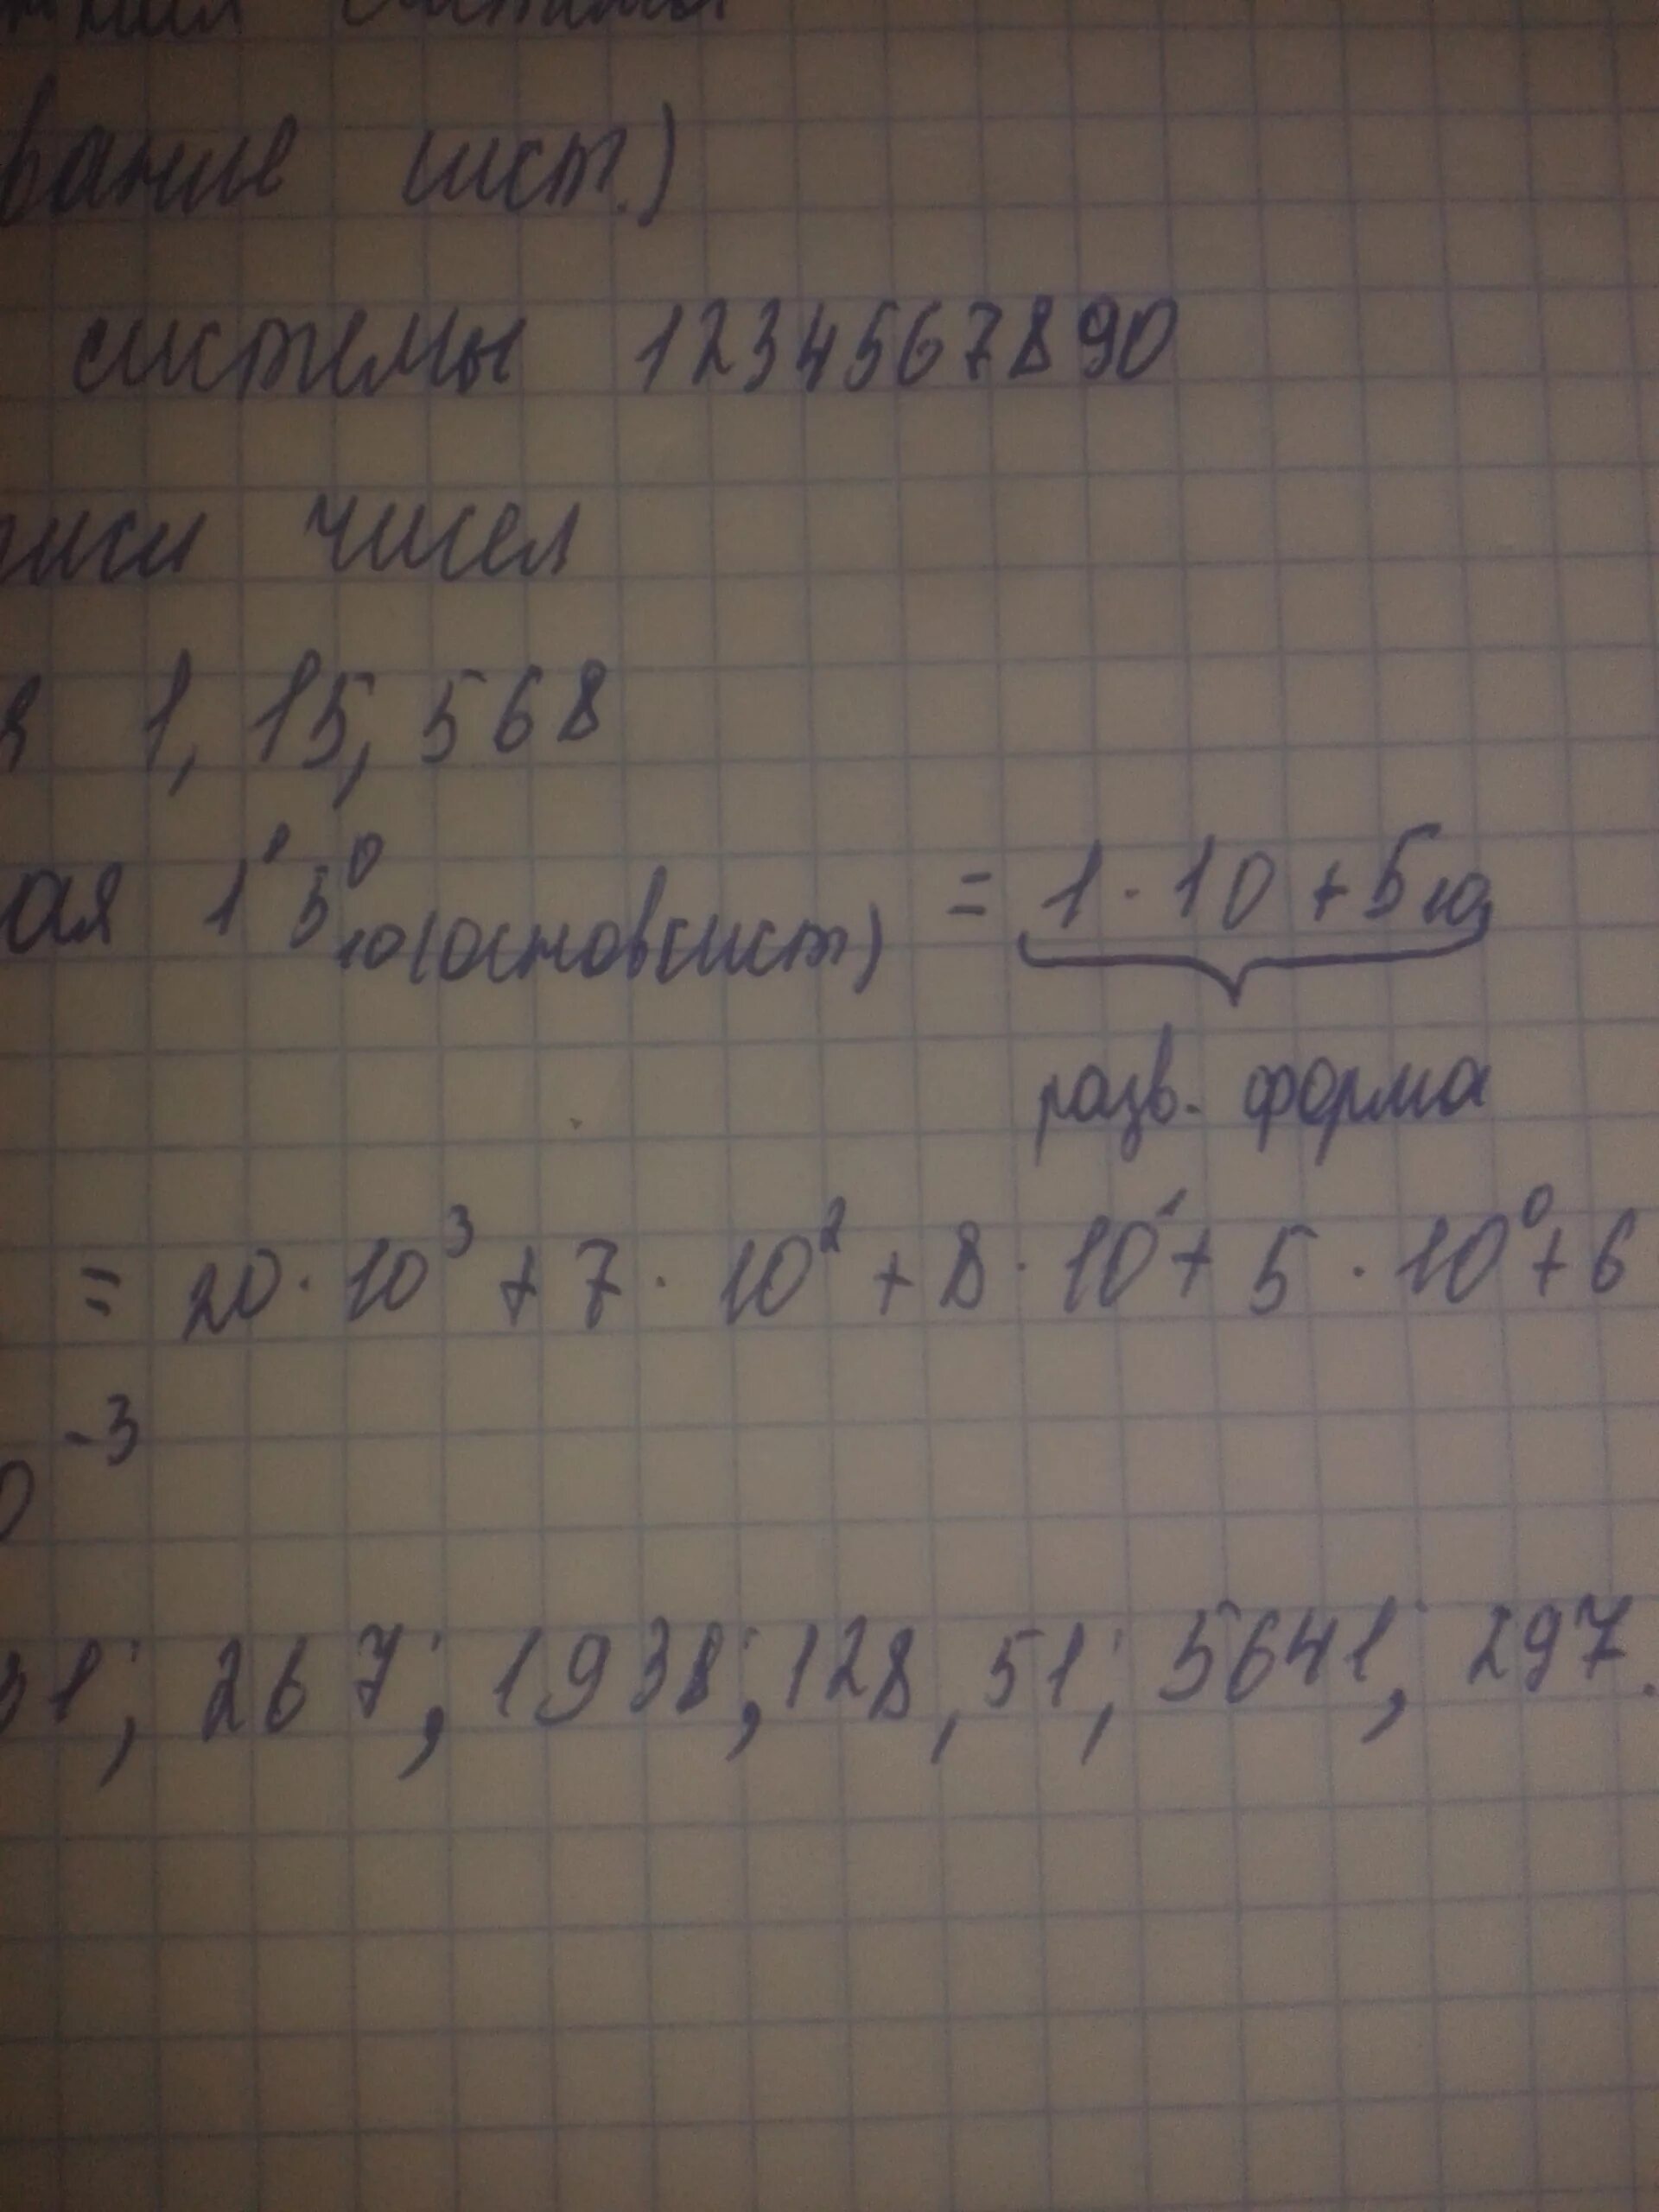 системы
вание сист.)
системы 1234567890
писи чисел
я 1, 15, 568
ая 1¹5⁰₁₀(основ сист) = 1 · 10 + 5₁₀,
разв. форма
= 20 · 10³ + 7 · 10² + 8 · 10¹ + 5 · 10⁰ + 6
0⁻³
31; 267; 1938; 128,51; 5641; 297.